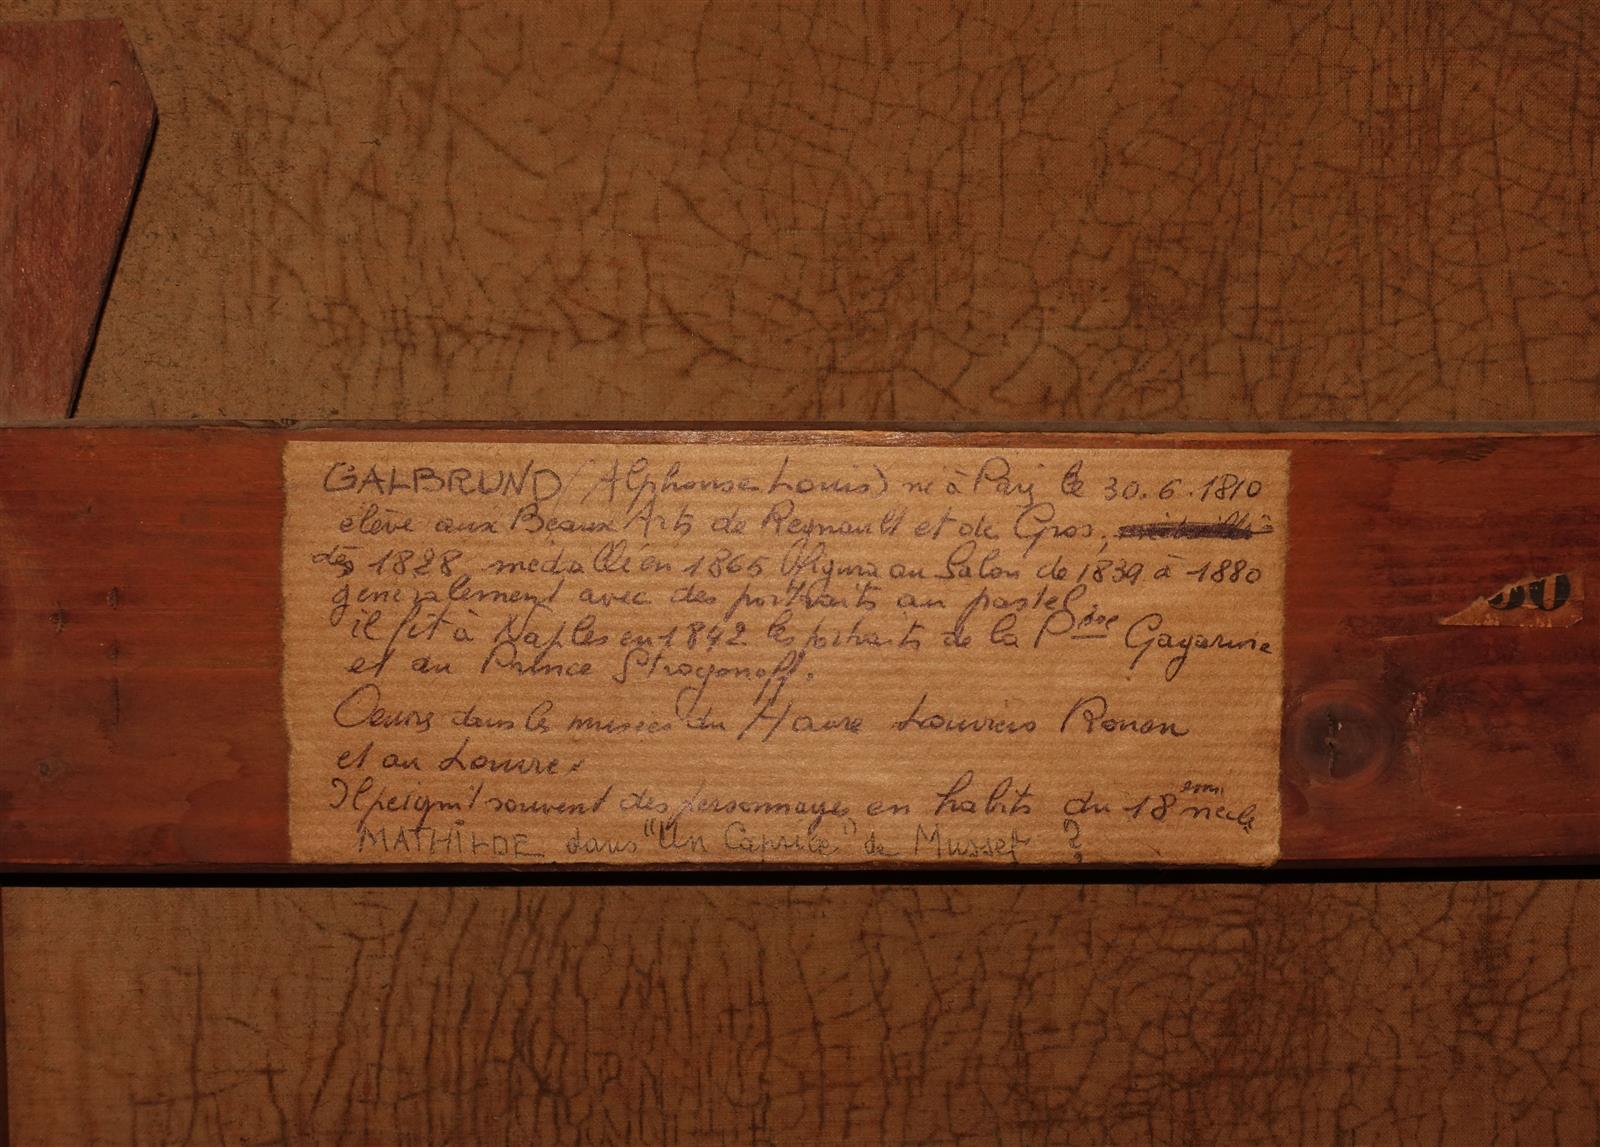 GALBRUND (Alphonse Louis) né à Paris le 30.6.1810
élève aux Beaux Arts de Regnault et de Gros,
dès 1828 medaillé en 1865 figura au Salon de 1839 à 1880
generalement avec des portraits au pastel
il fit à Naples en 1842 les portraits de la Psse Gagarine
et du Prince Strogonoff.
Oeuvres dans les musées du Havre Louviers Rouen
et au Louvre.
Il peignit souvent des personnages en habits du 18eme siècle
MATHILDE dans "Un Caprice" de Musset ?